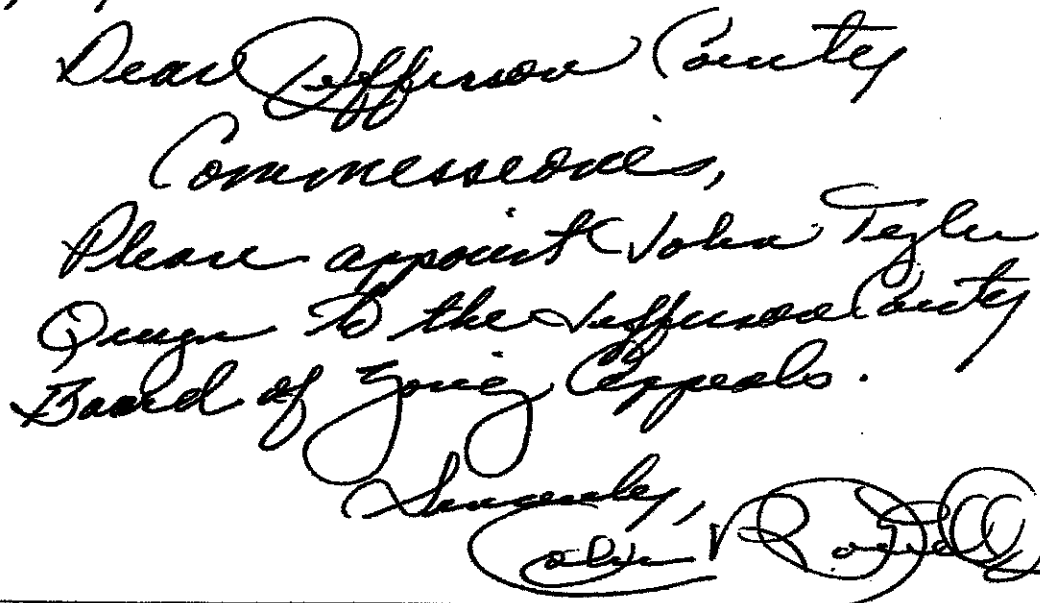 Dear Jefferson County
Commissiones,
Please appoint John Tyler
to the Jefferson County
Board of Zoning Appeals.
Sincerely,